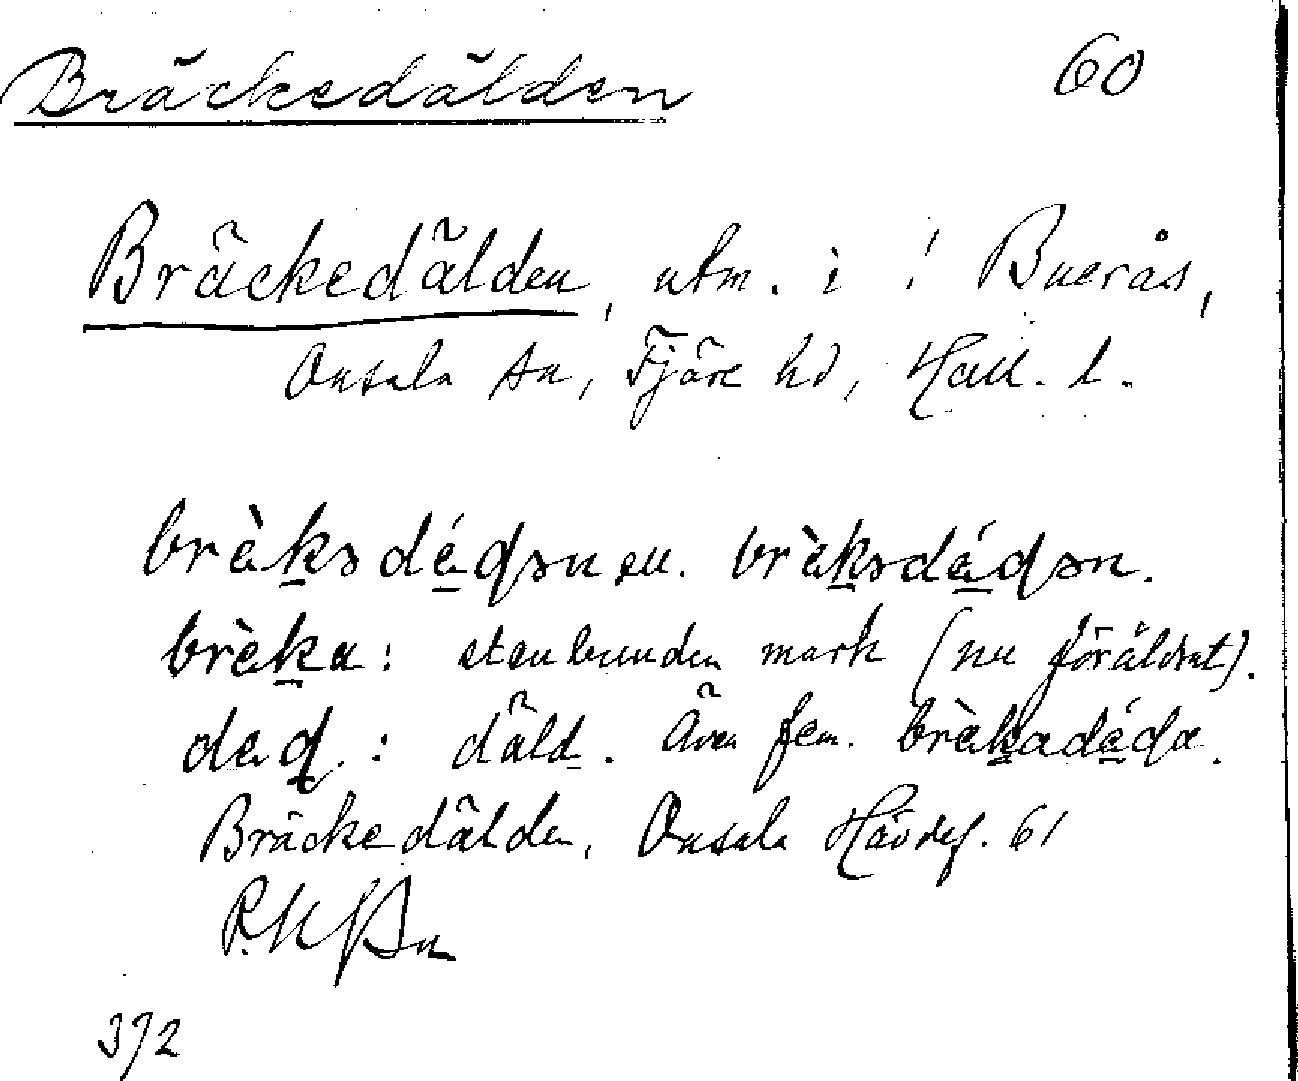 Bräckedälden 60
Bräckedälden, utm. i ! Buerås,
Onsala sn, Fjäre hd, Hall. l.
brèkədéɖən ell. brèkədáɖən.
brèka: stenbunden mark (nu föråldrat).
deɖ: däld. Även fem. brèkadéɖa.
Bräckedälden, Onsala Hävdef. 61
372